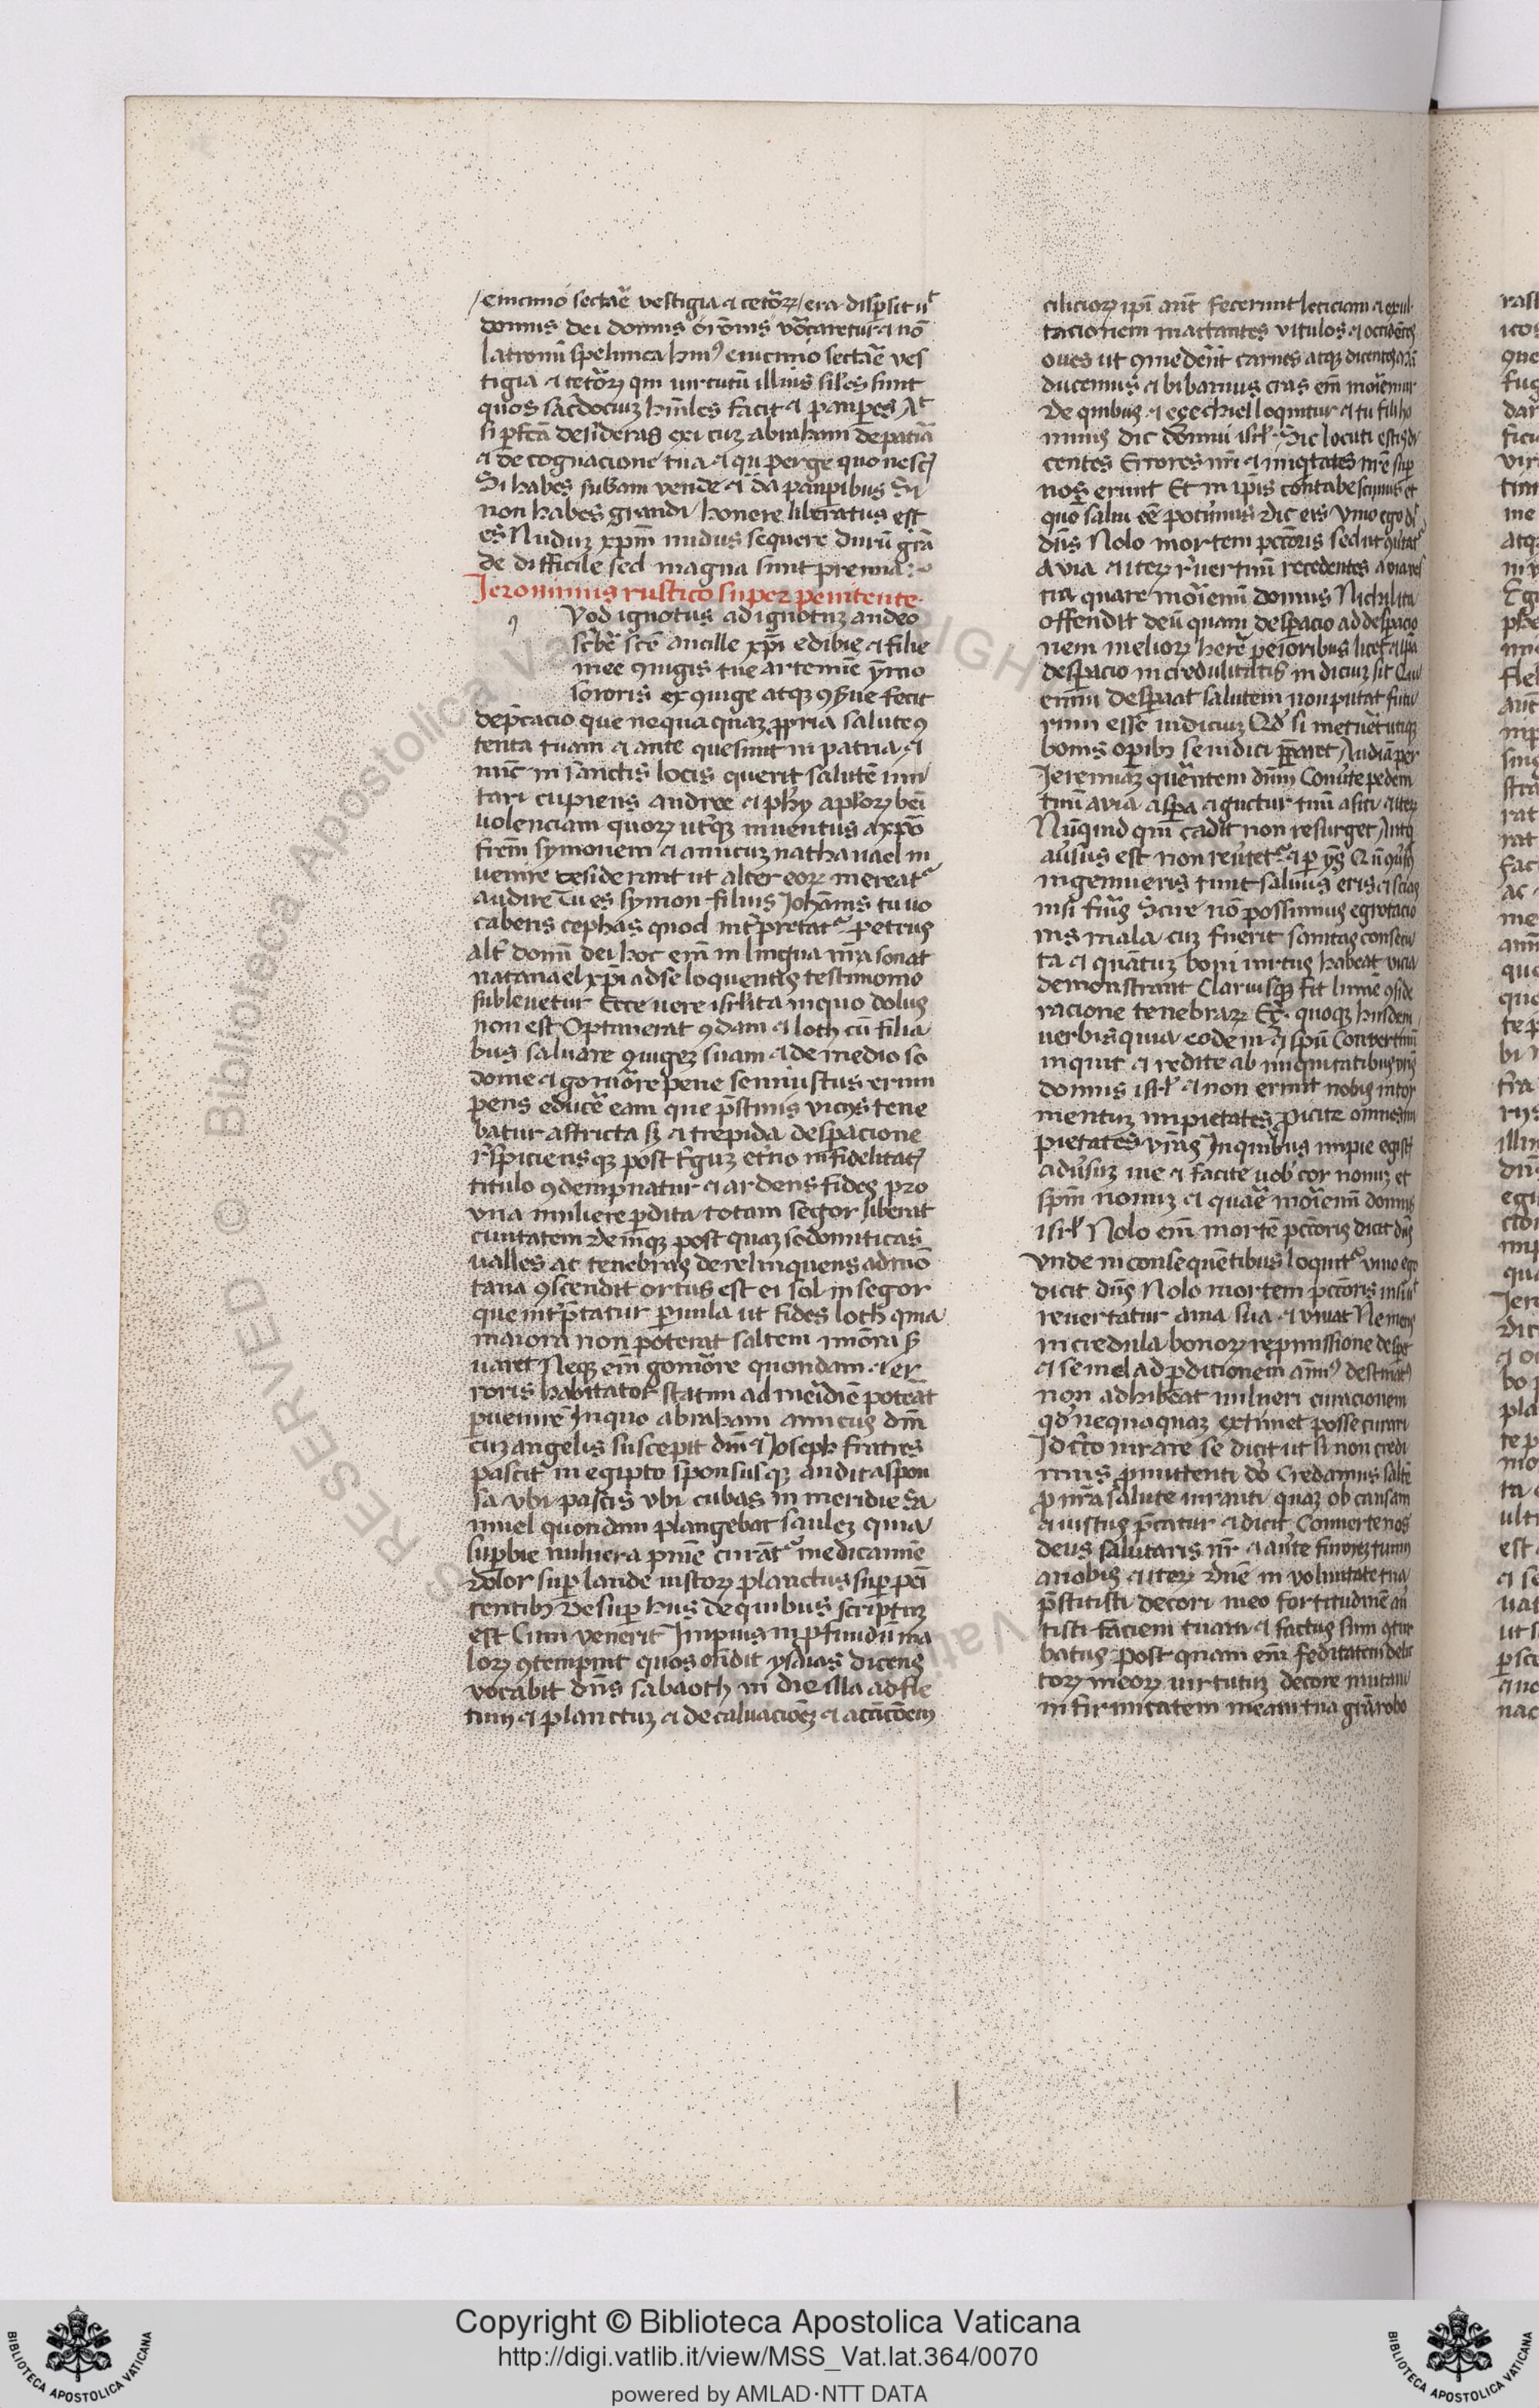 eiucino sectare vestigia et cetorꝝ era dispsit ut
domus dei domus orōnis vocaretur et nō
latronū spelunca huiꝰ eiucino sectare ves
tigia et cetorꝝ qui uirtutū illius siles sunt
quos sacdociuz humles facit et paupes At
si pfcā desideras exi cuz abraham de patia
et de cognacione tua et qui perge quo nescis
Si habes subam vende et da paupibus Si
non habes grandi honere liberatus est
es Nuduz xpm nudus sequere durū grā
de difficile sed magna sunt premia
Jeronimus rustico super penitente
Vod ignotus ad ignotuz audeo
scbe sce ancille xpi edibie et filie
mee ꝯiugis tue artemie ymo
sororis ex ꝯiuge atqꝫ ꝯsue fecit
depcacio que nequaquaz ppria salute ꝯ
tenta tuam et ante quesiuit in patria et
nūc in sanctis locis querit salutē imi
tari cupiens andree et phy aplorꝝ bei
uolenciam quorꝝ utqꝫ inuentus a xpo
frem symonem et amicuz nathanael in
uenire desiderunt ut alter eorꝝ mereatᵃ
audire Tu es symon filius Johānis tu uo
caberis cephas quod intpretatᵃ petrus
alt donū dei hoc em in lingua nra sonat
natanael xpi ad se loquentis testimonio
subleuetur Ecce uere isrlita in quo dolus
non est Optauerat ꝯdam et loth cū filia
bus saluare ꝯiugez suam et de medio so
dome et gomore pene semiustus erum
pens educe eam que pstinis vicijs tene
batur astricta sꝫ et trepida despacione
rspiciensqꝫ post tguz etno infidelitatis
titulo ꝯdempnatur et ardens fides pro
vna muliere pdita totam segor liberat
ciuitatem deniqꝫ post quaz sodomiticas
ualles ac tenebras derelinquens ad mō
tana ꝯscendit ortus est ei sol in segor
que intptatur puula ut fides loth quia
maiora non poterat saltem imora s
uaret Neqꝫ em gomore quondam et er
roris habitator statim ad meridiē poterat
puenire In quo abraham amicus dm
cuz angelis suscepit dm et Joseph fratres
pascit in egipto sponsusqꝫ audit a spon
sa vbi pascis vbi cubas in meridie Sa
muel quondam plangebat saulez quia
supbie uulnera pnie curātᵃ medicamīe
dolor sup laude iustorꝝ planctus sup pei
tentibꝫ De sup hiis de quibus scriptuz
est Cum venerit Impius in pfundū ma
lorꝝ ꝯtempnit quos ondit ysaias dicens
vocabit dns sabaoth in die illa ad fle
tum et planctuz et decaluacioēz et accicoēm
ciliciorꝝ ipi aūt fecerunt leticiam et exul
tacionem mactantes vitulos et occidētes
oues ut ꝯmederent carnes atqꝫ dicentes
ducemus et bibamus cras em moriemur
De quibus et ezechiel loquitur et tu fili ho
minis dic domui isrl Sic locuti estis di
centes Errores nri et iniqtates nre sup
nos erunt Et in ipis contabescimus et
quo salui eē potimus dic eis Viuo ego
dns Nolo mortem pctoris sed ut
a via et iterꝝ rertimi recedentes a
tia quare moriemi domus Nichil ita
offendit deū quam despacio ad despacio
nem meliorꝝ herere peioribus licet
despacio incredulitatis indiciuz sit Qui
enim despaat salutem non putat futu
rum esse iudiciuz Qd si metuet utiqꝫ
bonis opibꝫ se iudici ppararet Audiā per
Jeremiaz querentem dnm Conute pedem
tuū a via aspa et guctur tuū a siti et iterꝝ
Nūquid qui cadit non resurget Aut q
ausus est non reutetᵃ et p ys
ingemueris tunc saluus eris et scies
nisi fuis Scire nō possumus egrotacio
nis mala cuz fuerit sanitas consecu
ta et quātuz boni uirtus habeat vicia
demonstrant Clariusqꝫ fit lumē ꝯside
racione tenebrarꝝ Ez quoqꝫ huisdem
uerbis quia eodem et spū Convertimi
inquit et redite ab iniquitatibus vris
domus isrl et non erunt nobis in tor
mentuz impietates picite omnes im
pietates vras In quibus impie egistis
aduisuz me et facite uob cor nouuz et
spm nouuz et quare moriemi domus
isrl Nolo em mortē pctoris dicit dns
Vnde in consequētibus loquitᵃ viuo ego
dicit dns Nolo mortem pctoris
reuertatur a uia sua et viuat Ne mens
incredula bonorꝝ repmissione despet
et semel ad pdicionem animꝰ destinatꝰ
non adhibeat uulneri curacionem
qd nequaquaz extimet posse curari
Idcirco iurare se dicit ut si non credi
mus pmittenti do Credamus salte
p nra salute iuranti quaz ob causam
et iustus pcatur et dicit Conuerte nos
deus salutaris nr et auerte furorez tuum
a nobis et iterꝝ Dne in voluntate tua
pstitisti decori meo fortitudinē au
tisti faciem tuam et factus sum ꝯtur
batus post quam em feditatem delic
torꝝ meorꝝ uirtutuz decore mutaui
infirmitatem meam tua gra robo
Copyright © Biblioteca Apostolica Vaticana
http://digi.vatlib.it/view/MSS_Vat.lat.364/0070
powered by AMLAD·NTT DATA